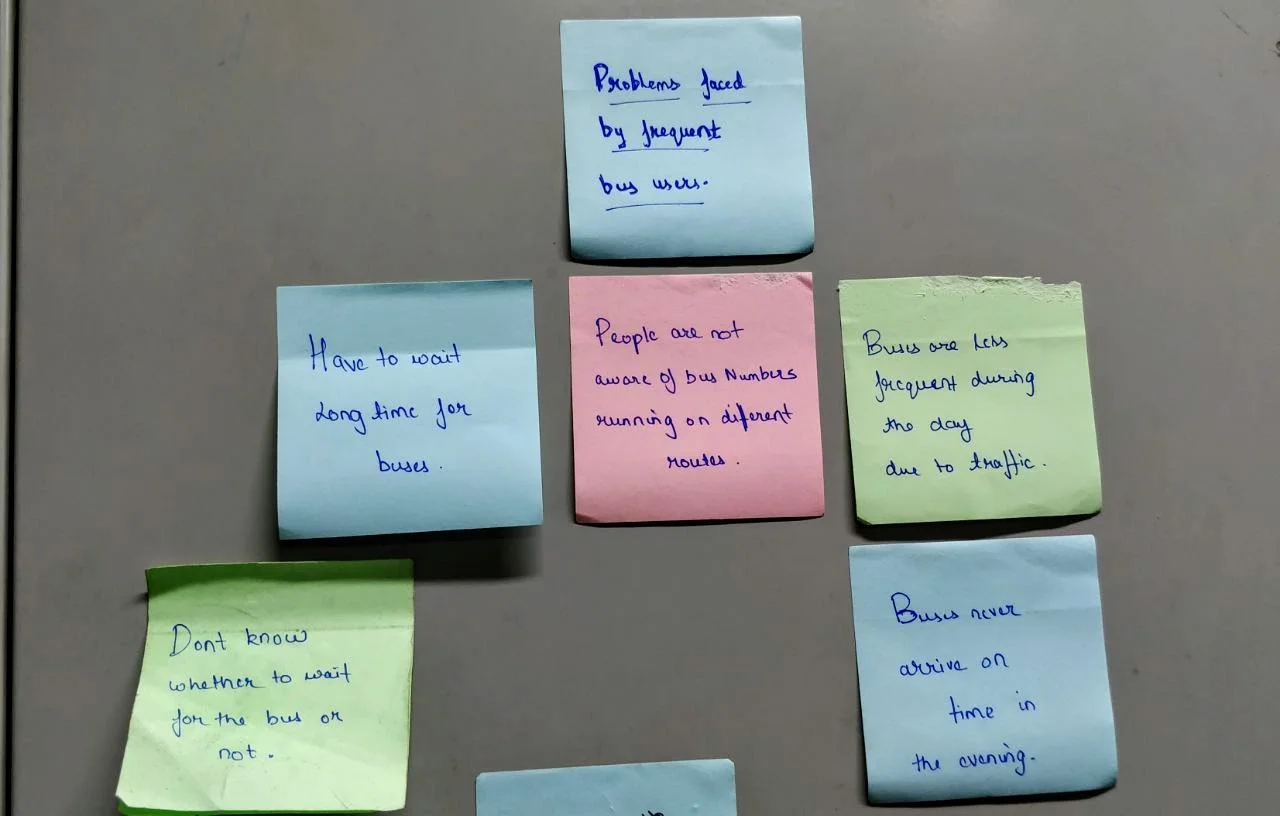 Problems faced
by frequent
bus users.
Have to wait
Long time for
buses.
People are not
aware of bus Numbers
running on diferent
routes.
Buses are Less
frequent during
the day
due to traffic.
Dont know
whether to wait
for the bus or
not.
Buses never
arrive on
time in
the evening.